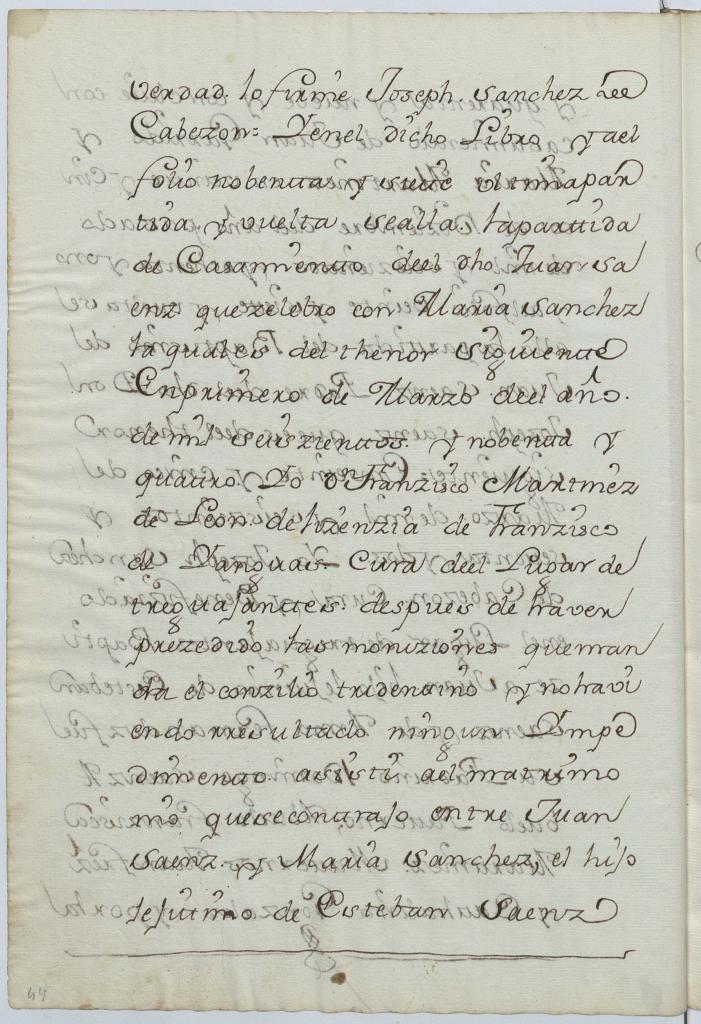 verdad. lo firme Joseph. sanchez dee
Cabezon= Yenel dicho Libro yael
folio nobenta y siete ultimapar
tida y vuelta sealla. lapartida
de Casamiento deel dho Juan sa
enz quezelebro con Maria sanchez
laqualeis del thenor siguiente
Enprimero de Marzo deel año.
de mil seiszientos. y nobenta y
quatro. Yo Dn Franzisco Martinez
de Leon. de lizenzia de Franzisco
de Yanguas- Cura deel Lugar de
treguajantes. despues de haver
prezedido las moniziones queman
da el conzilio tridentino y nohavi
endo rresultado ningun Ympe
dimento. asisti ael matrimo
nio quesecontrajo entre Juan
Saenz. y Maria sanchez, el hijo
lejitimo de Esteban Saenz
44